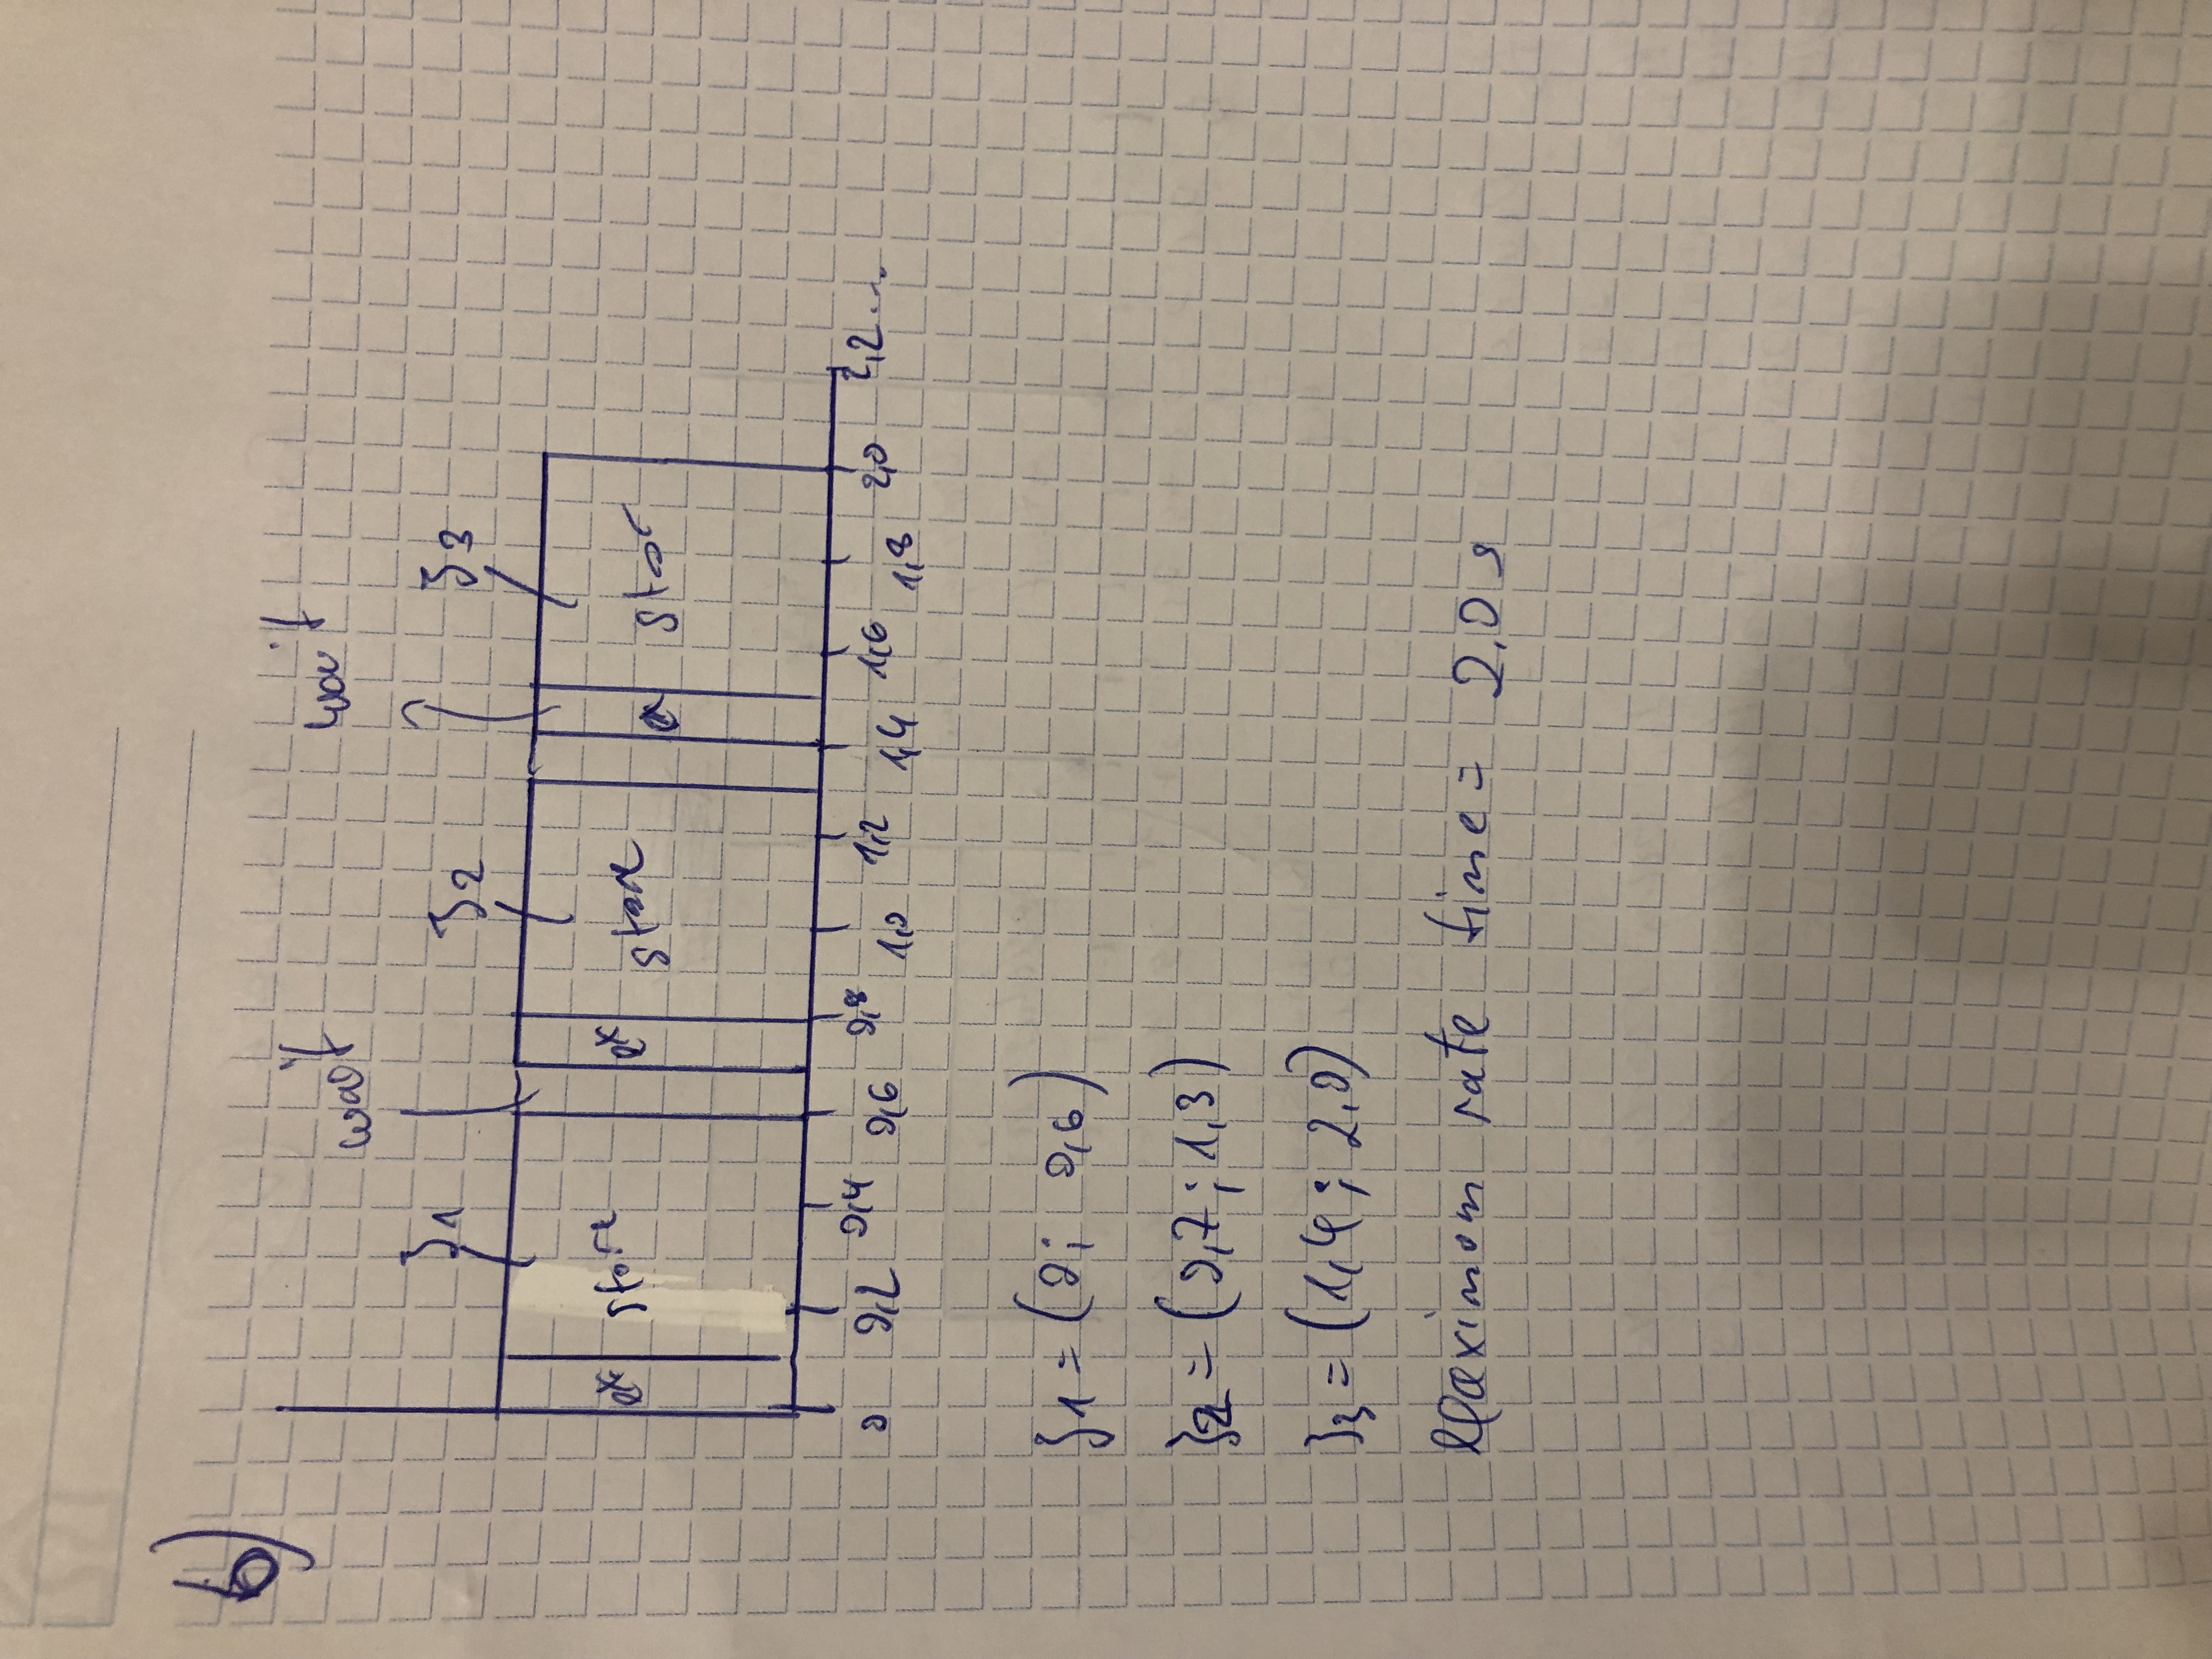 b)
wait wait
ζ1 ζ2 ζ3
ex store ex store ex stor
0 0,2 0,4 0,6 0,8 1,0 1,2 1,4 1,6 1,8 2,0 2,2...
ζ1 = (0; 0,6)
ζ2 = (0,7; 1,3)
ζ3 = (1,4; 2,0)
Maximom rate time = 2,0 s